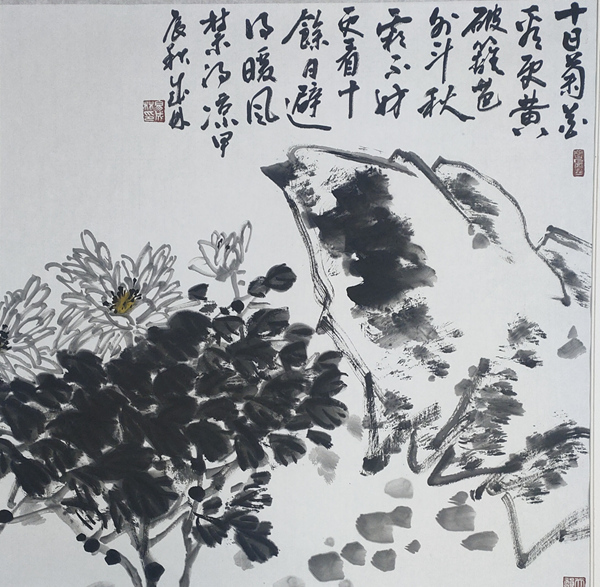 十日菊花
看更黄
破籬笆
外斗秋
霜不妨
更看十
餘日避
得暖風
禁得凉甲
辰秋